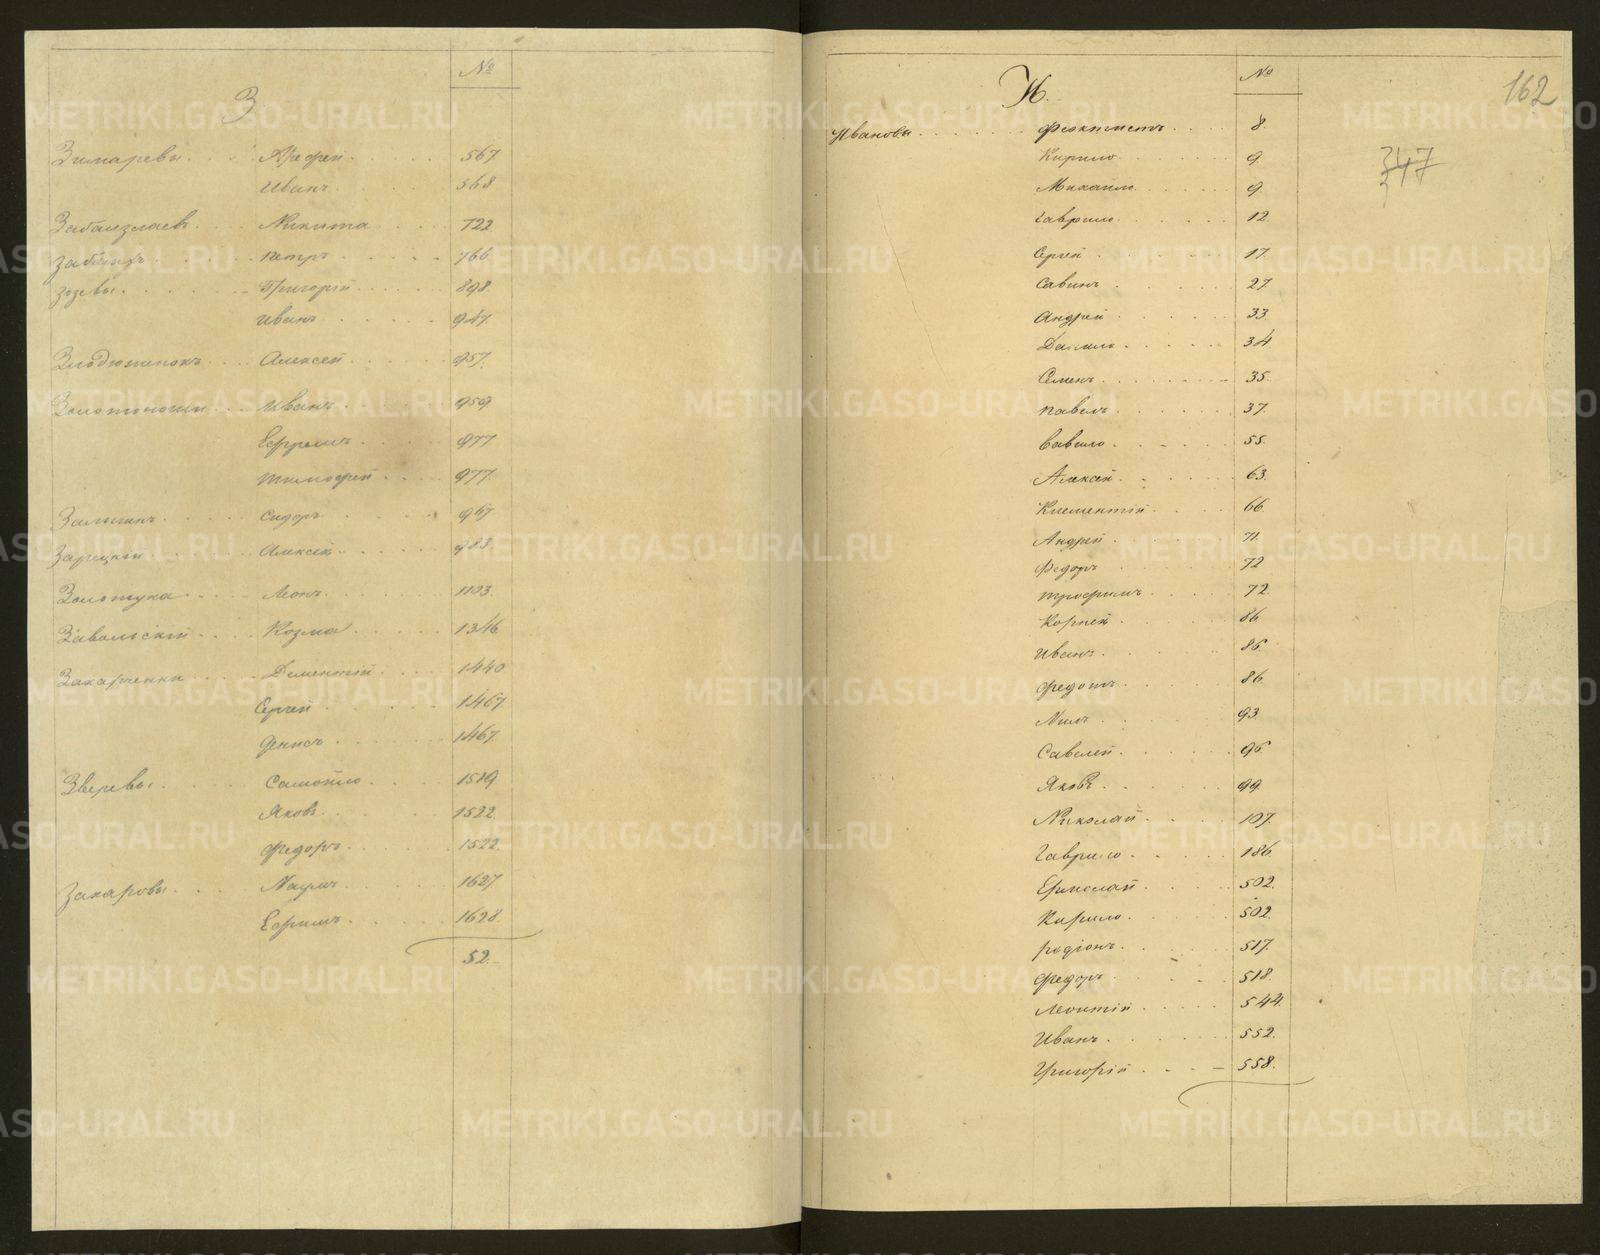 №
З
Зимаревы Арефей 567
Иванъ 568
Никита 722
Петръ 766
Зозевы Григорій 898
Иванъ 947
Алексей 957
Иванъ 959
Ефремъ 977
Тимофей 977
Сидоръ 967
Зарецкій Алексей 983
Золотуха Леонъ 1103
Завальскій Козма 1346
Захарченки Дементій 1440
Сергей 1467
Денисъ 1467
Зверевы Самойло 1519
Яковъ 1522
Федоръ 1522
Захаровы Наумъ 1627
Ефимъ 1628
52
№
И
162
Ивановы Феоктистъ 8
347
Кирило 9
Михайло 9
Гаврило 12
Сергей 17
Савинъ 27
Андрей 33
Данило 34
Семенъ 35
Павелъ 37
Вавило 55
Алексей 63
Клементій 66
Андрей 71
Федоръ 72
Трофимъ 72
Корней 86
Иванъ 86
Федотъ 86
Нилъ 93
Савелей 96
Яковъ 99
Николай 107
Гаврило 186
Ермолай 502
Кирило 502
Родіонъ 517
Федоръ 518
Леонтій 544
Иванъ 552
Григорій 558
METRIKI.GASO-URAL.RU